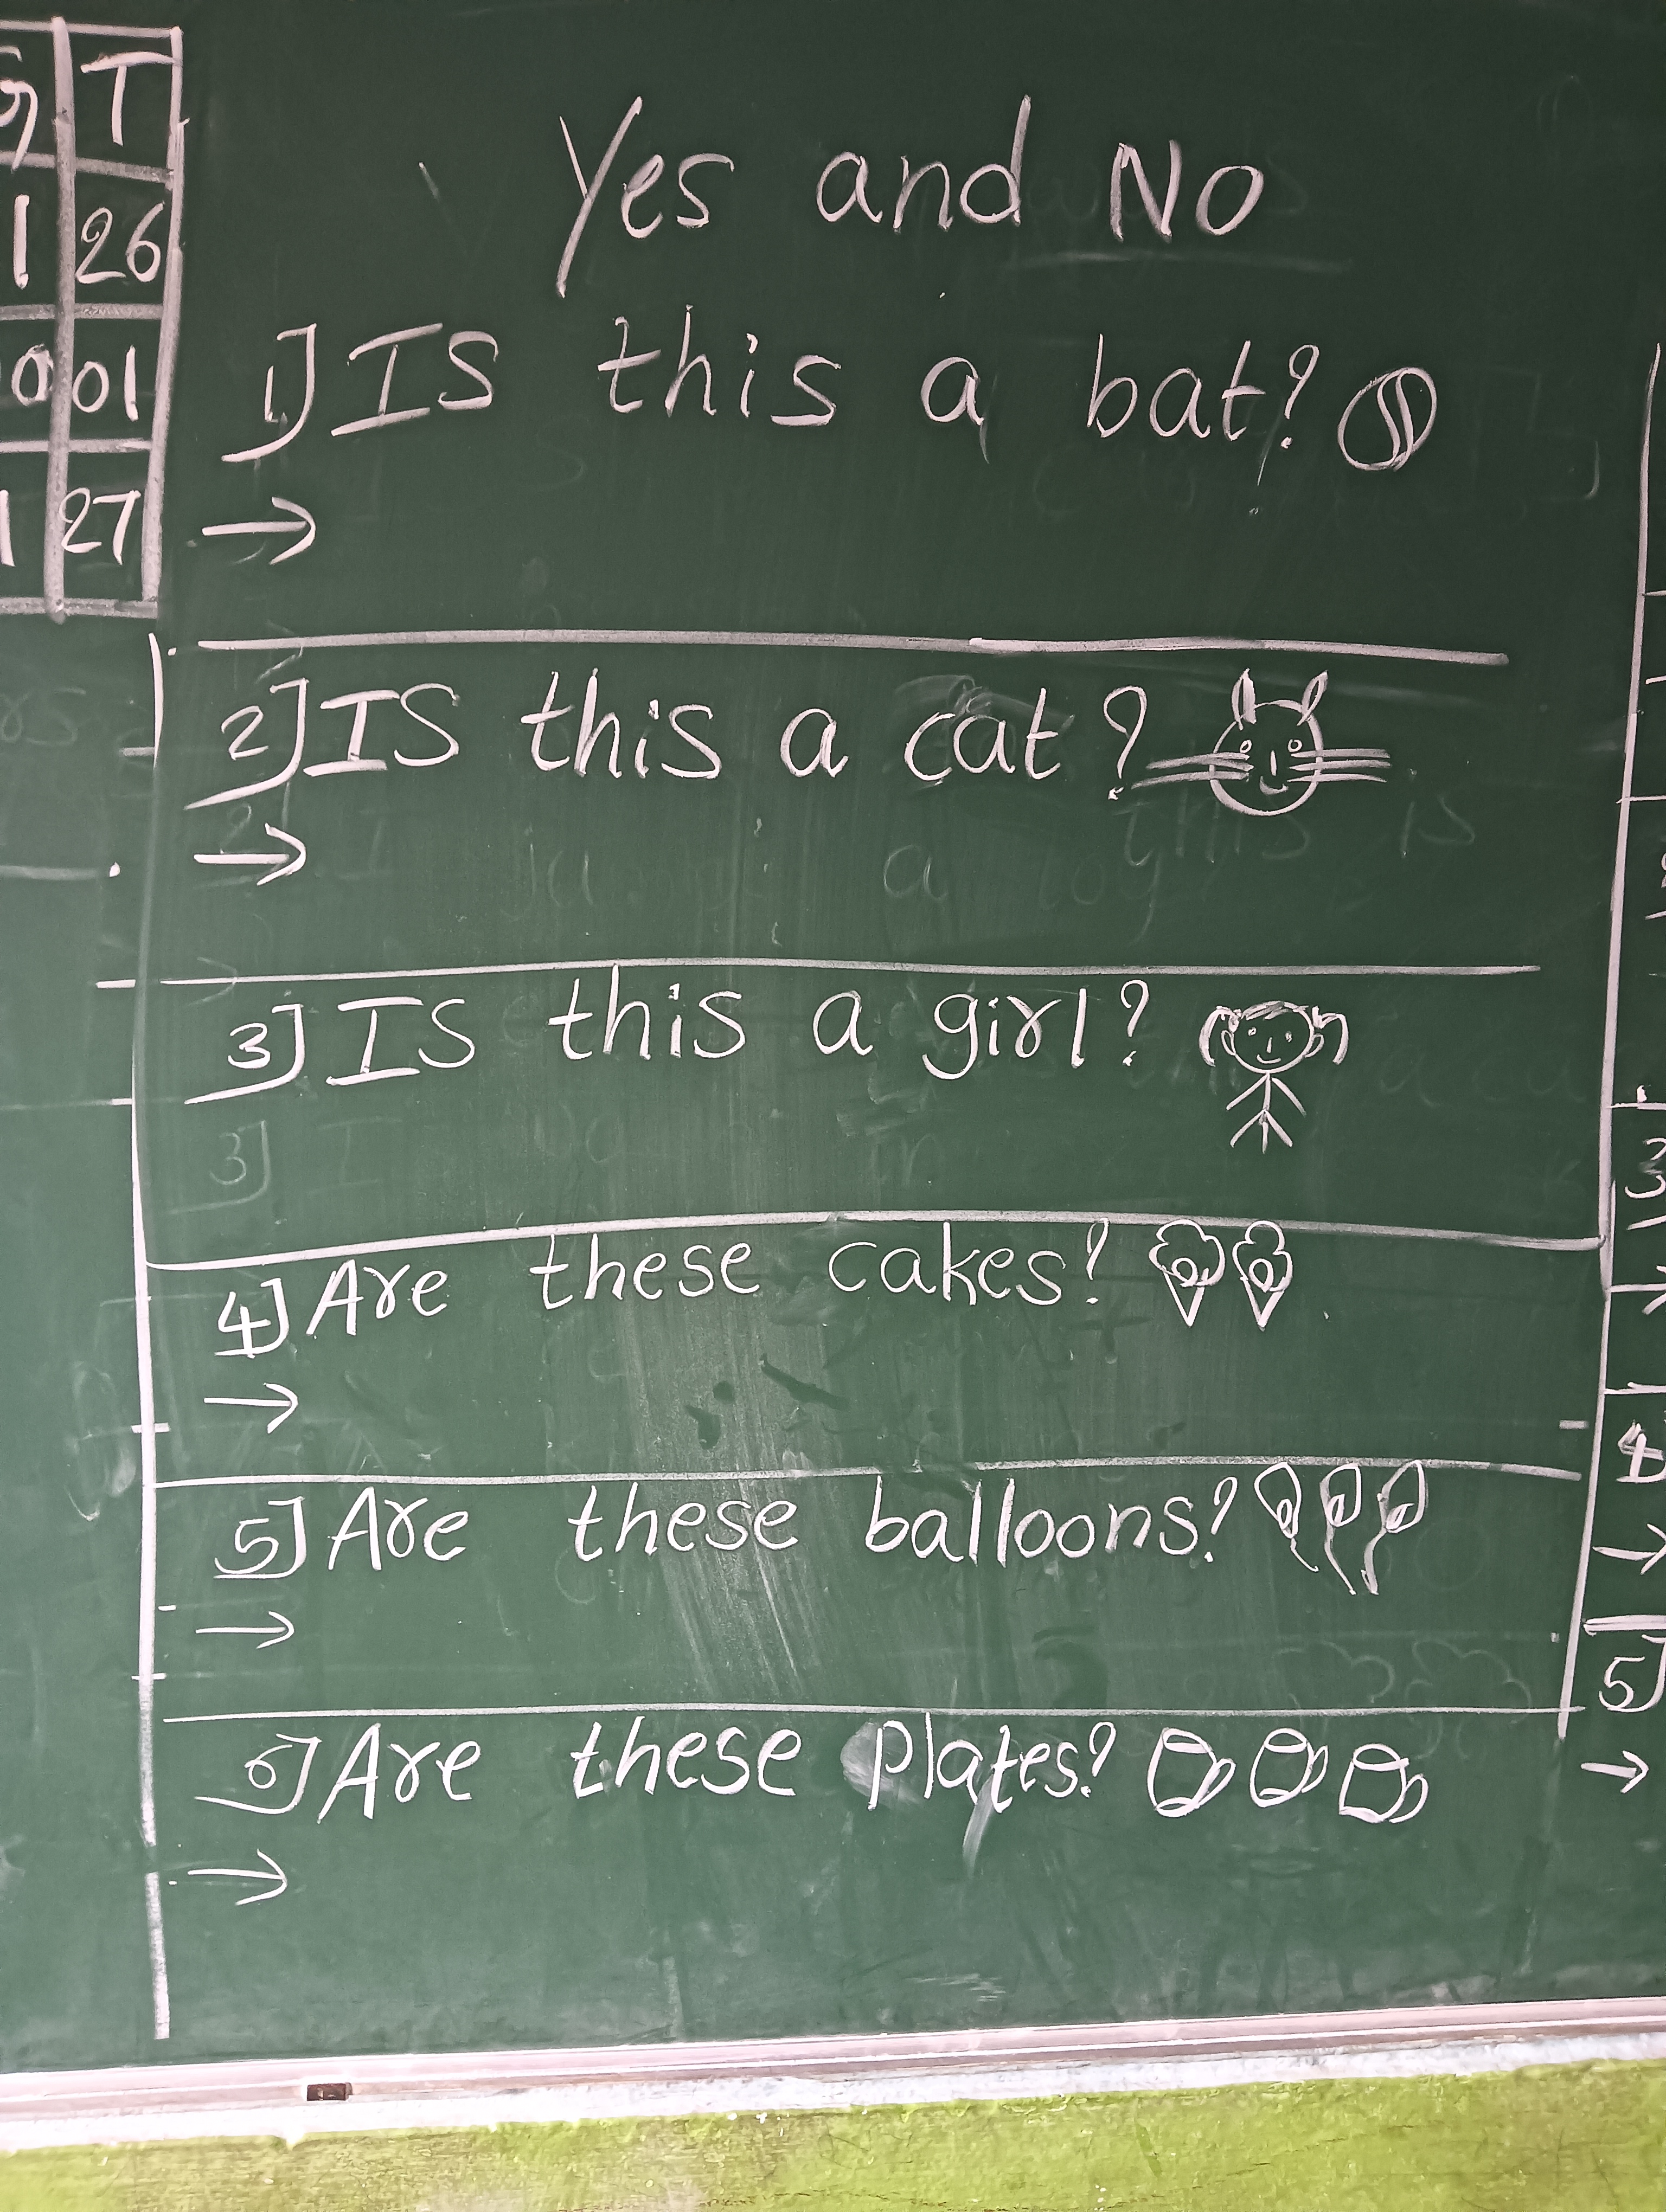 T
1 26
0 01
1 27
Yes and No
1] IS this a bat?
→
2] IS this a cat ?
→
3] IS this a girl?
3]
4] Are these cakes?
→
5] Are these balloons?
→
6] Are these Plates?
→
3
4
→
5]
→